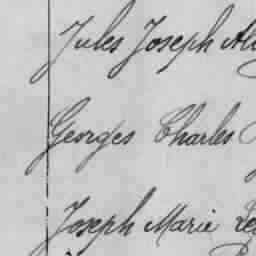 Jules Joseph
Georges Charles
Joseph Marie